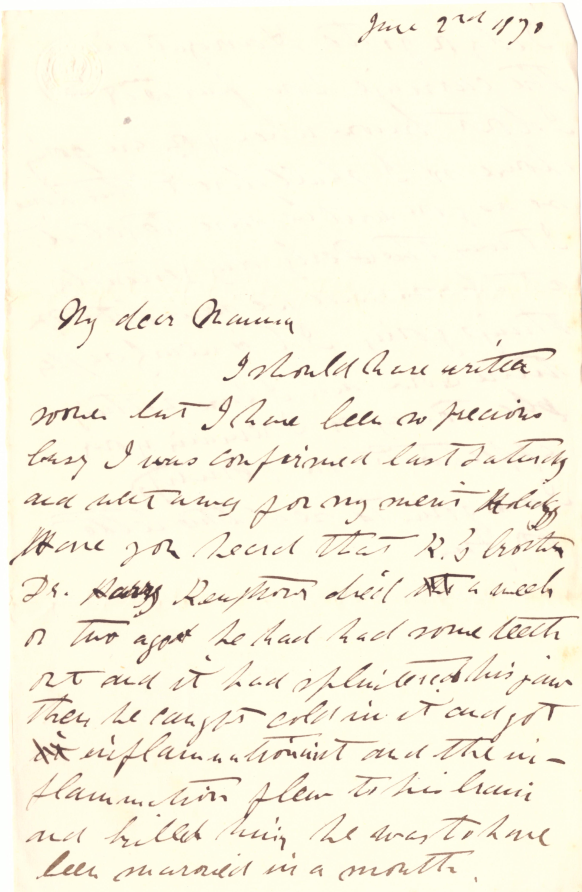 June 2nd 1870
My dear Mamma
I should have written
sooner but I have been so precious
busy I was confirmed last Saturday
and went away for my merit Holiday
Have you heard that K.'s brother
Dr. Harry died a week
or two ago he had had some teeth
out and it had splintered his jaw
then he caught cold in it and got
inflammation in it and the in-
flammation flew to his brain
and killed him, he was to have
been married in a month.